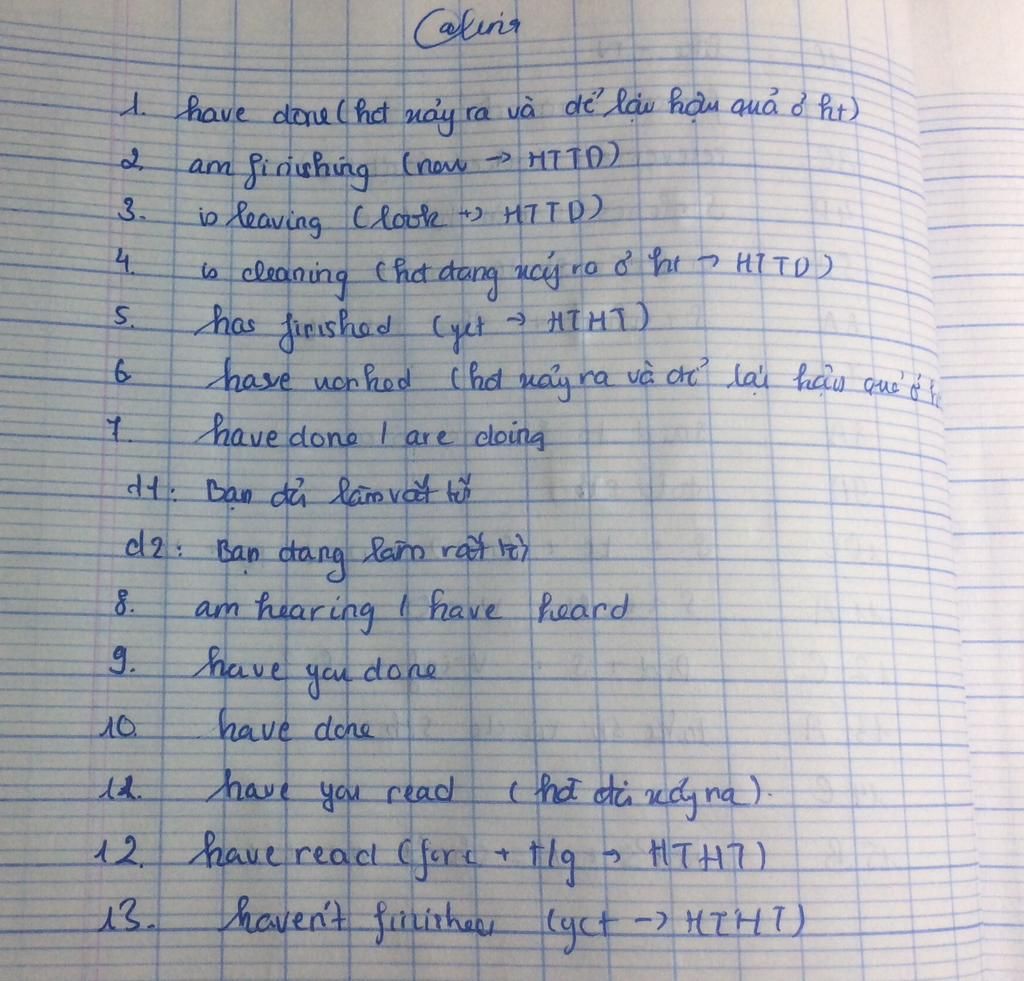 1. have done (hđ xảy ra và để lại hậu quả ở ht)
2. am finishing (now → HTTD)
3. is leaving (look → HTTD)
4. is cleaning (hđ đang xảy ra ở ht → HTTD)
5. has finished (yet → HTHT)
6. have worked (hđ xảy ra và để lại hậu quả ở
7. have done / are doing
d1: Bạn đã làm rất tốt
d2: Bạn đang làm rất tốt
8. am hearing / have heard
9. have you done
10. have done
11. have you read (hđ đã xảy ra).
12. have read (for + t/g → HTHT)
13. haven't finished (yet → HTHT)